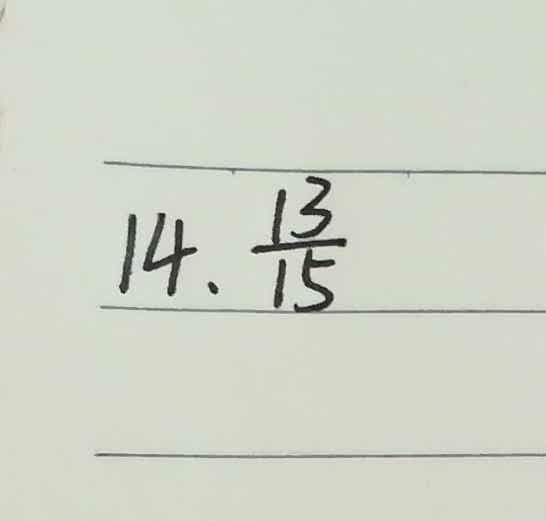 14. 13/15